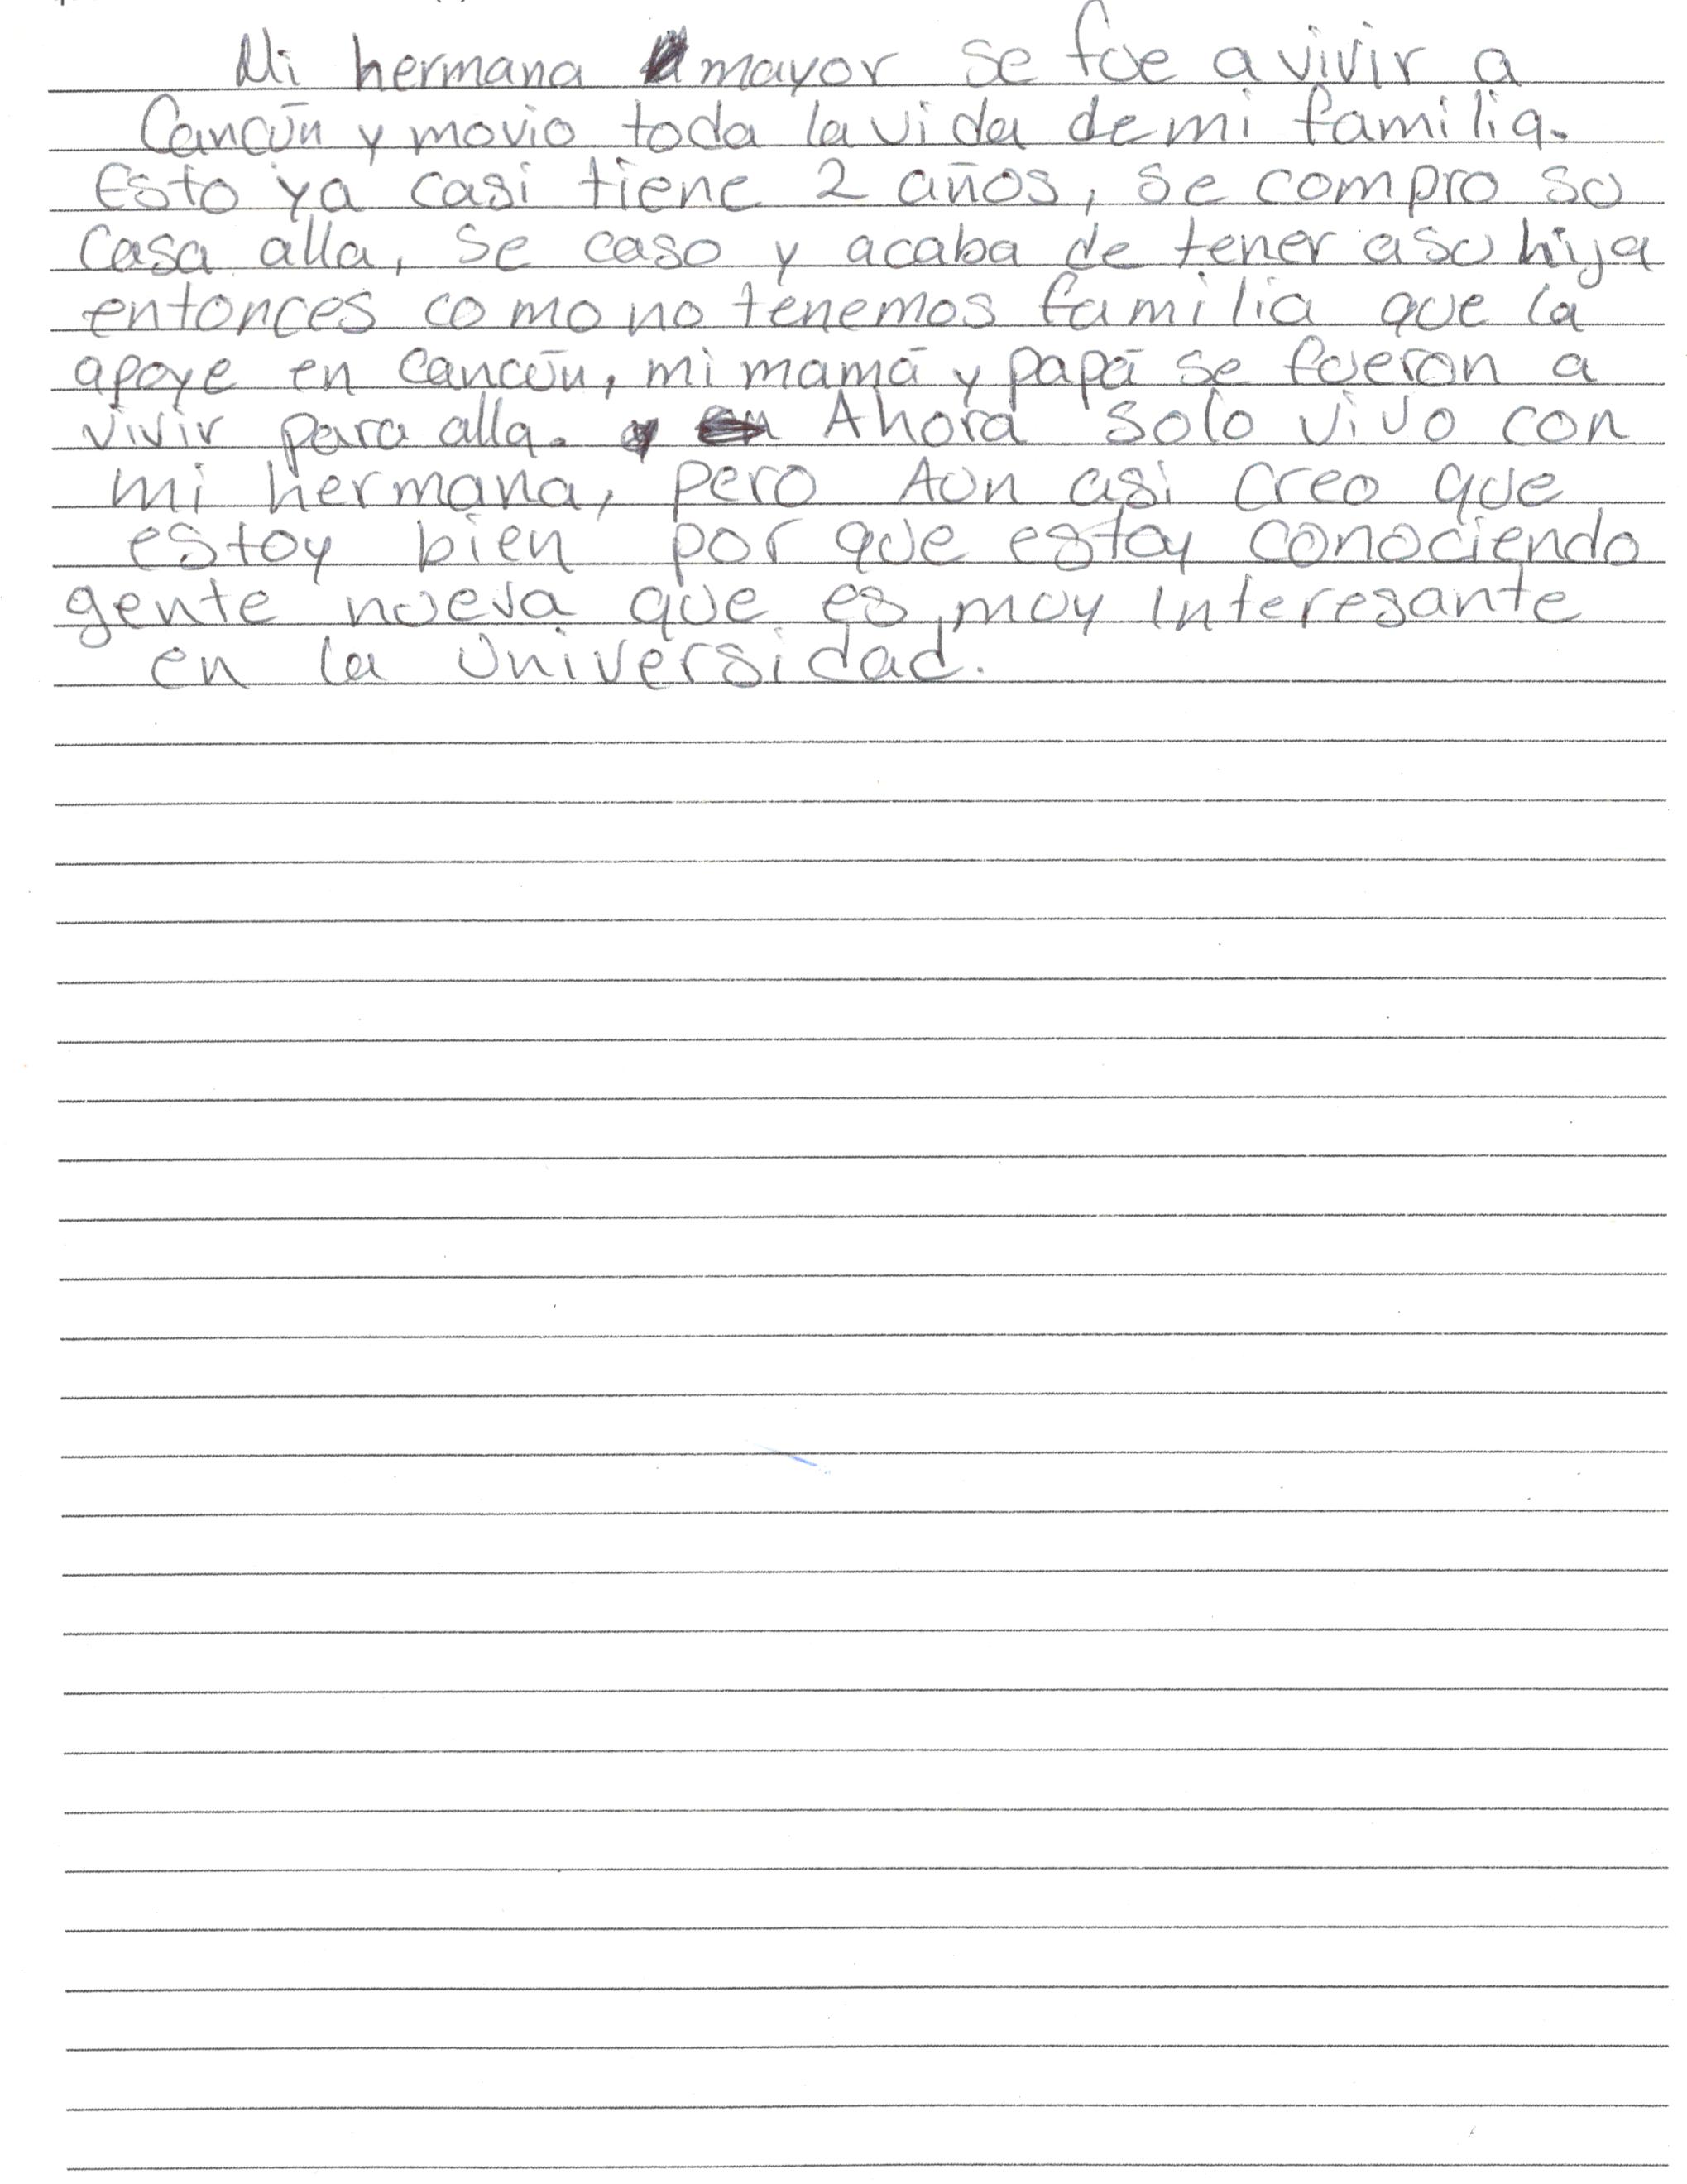 Mi hermana mayor se fue a vivir a
Cancún y movio toda la vida de mi familia.
Esto ya casi tiene 2 años, se compro su
casa alla, se caso y acaba de tener a su hija
entonces como no tenemos familia que la
apoye en Cancún, mi mamá y papá se fueron a
vivir para alla. Ahora solo vivo con
mi hermana, pero Aun asi creo que
estoy bien por que estoy conociendo
gente nueva que es muy interesante
en la Universidad.